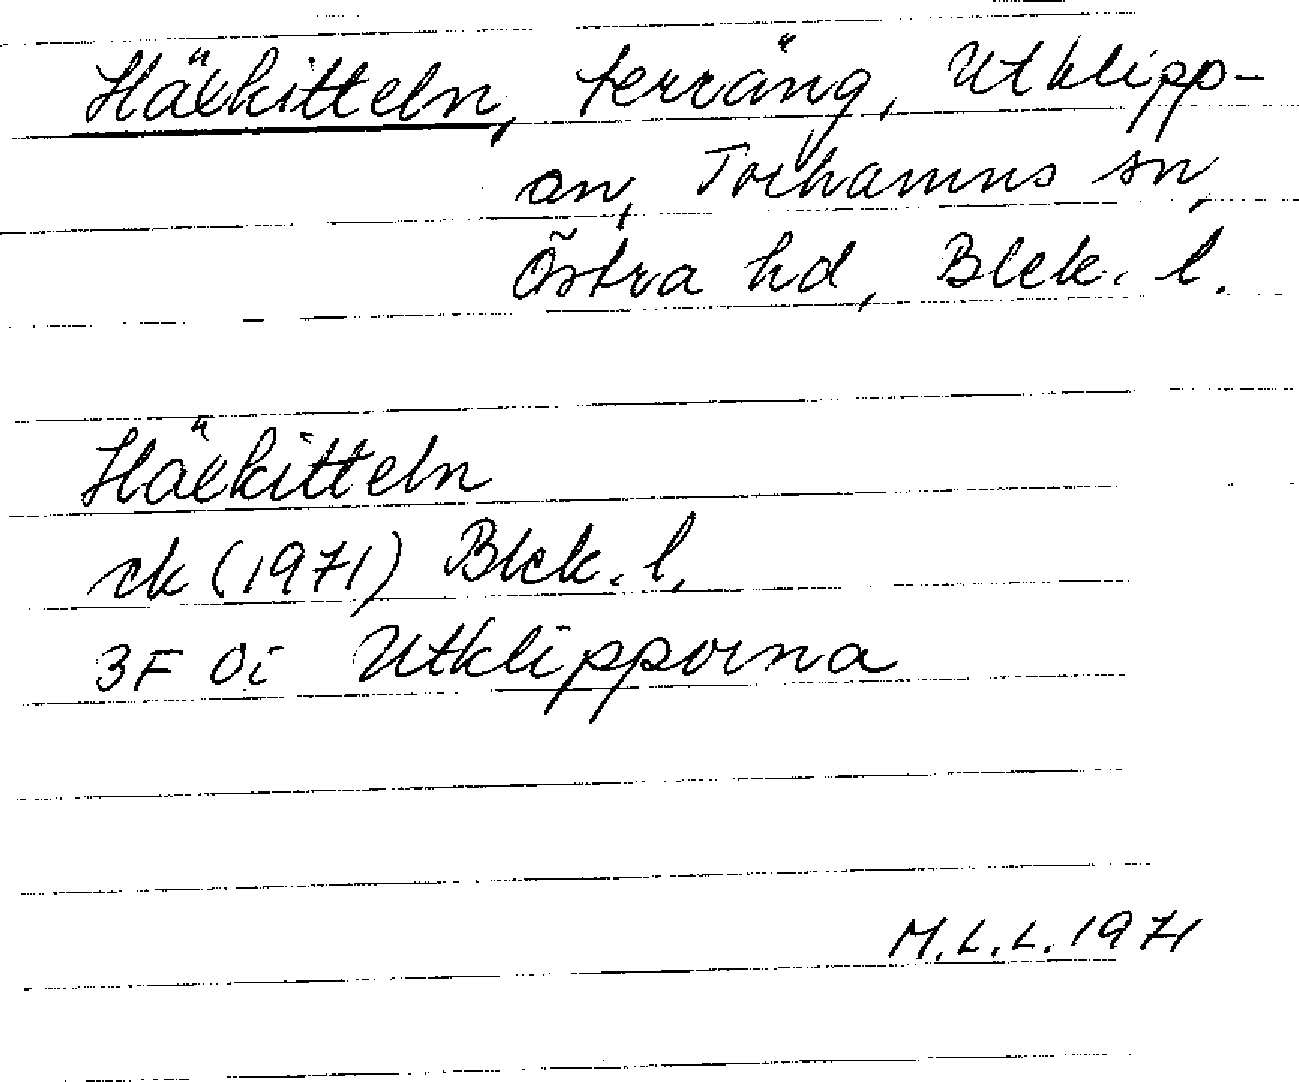 Hälkitteln, terräng, Utklipp-
an, Torhamns sn,
Östra hd, Blek. l.
Hälkitteln
rk (1971) Blek. l.
3F 0i Utklipporna
M.L.L. 1971